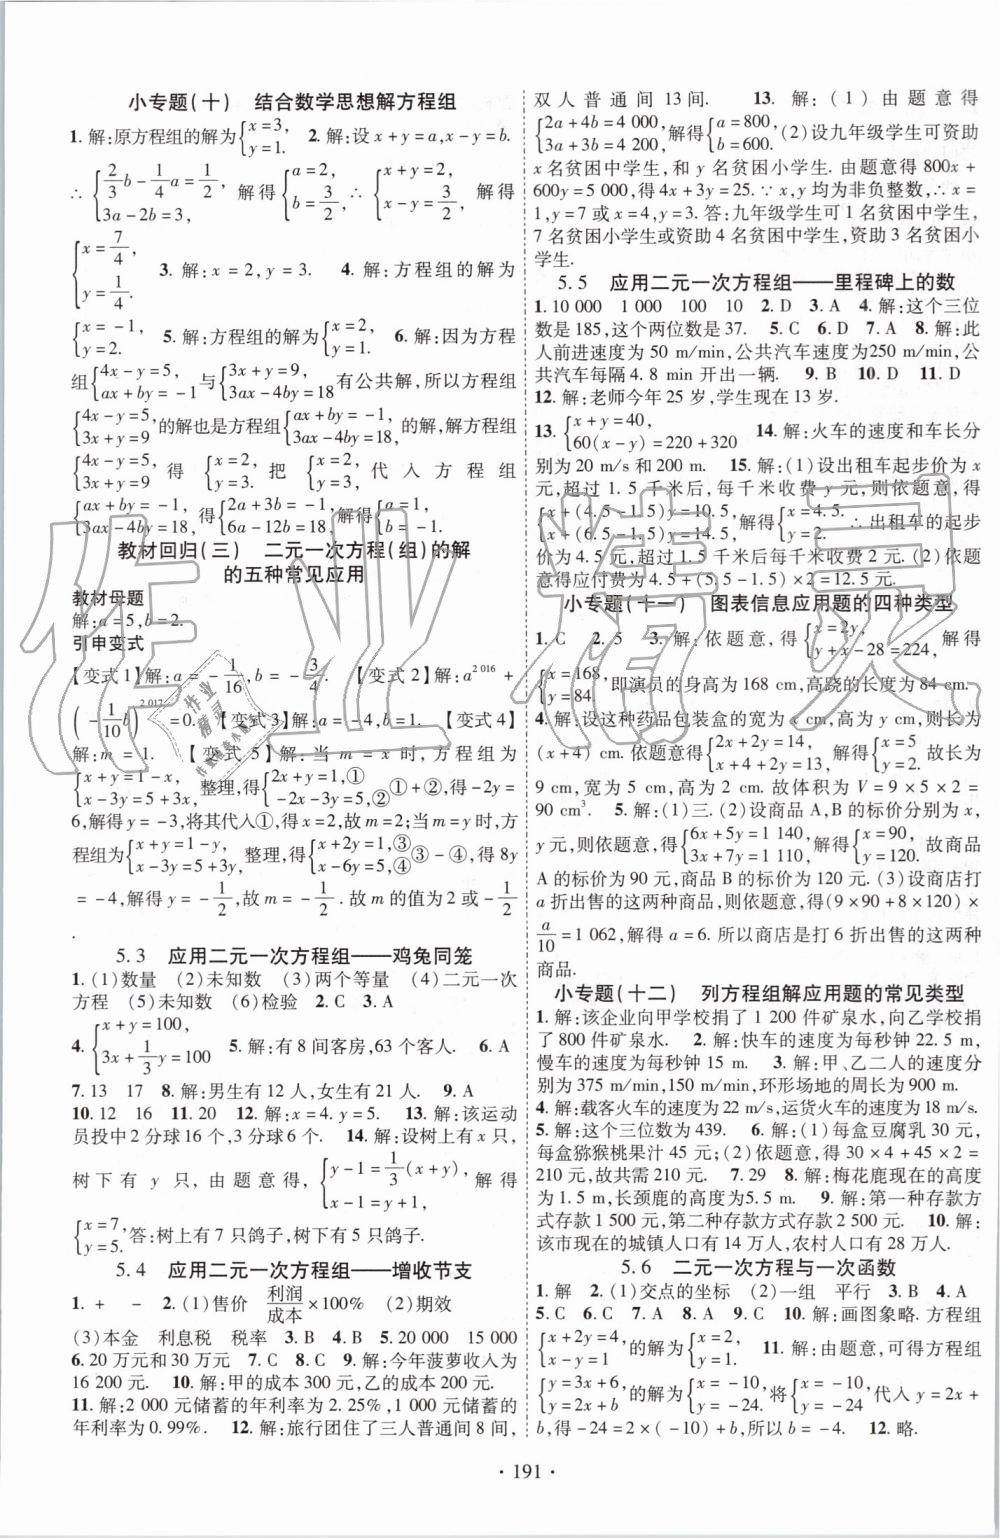 小专题(十)　结合数学思想解方程组
1. 解:原方程组的解为{x=3, y=1.　2. 解:设 x+y=a,x-y=b.
∴ {2/3 b-1/4 a=1/2, 3a-2b=3, 解得{a=2, b=3/2, 即{x+y=2, x-y=3/2. 解得
{x=7/4, y=1/4.　3. 解:x=2,y=3.　4. 解:方程组的解为
{x=-1, y=2.　5. 解:方程组的解为{x=2, y=1.　6. 解:因为方程
组{4x-y=5, ax+by=-1 与{3x+y=9, 3ax-4by=18 有公共解,所以方程组
{4x-y=5, 3x+y=9 的解也是方程组{ax+by=-1, 3ax-4by=18, 的解,解方程组
{4x-y=5, 3x+y=9 得{x=2, y=3, 把{x=2, y=3, 代入方程组
{ax+by=-1, 3ax-4by=18, 得{2a+3b=-1, 6a-12b=18, 解得{a=1, b=-1.
教材回归(三)　二元一次方程(组)的解
的五种常见应用
教材母题
解:a=5,b=2.
引申变式
【变式1】解:a=-1/16,b=-3/4.　【变式2】解:a^2 016 +
(-1/10 b)^2 017=0.　【变式3】解:a=-4,b=1.　【变式4】
解:m=1.　【变式5】解:当 m=x 时,方程组为
{x+y=1-x, x-3y=5+3x, 整理,得{2x+y=1,① -2x-3y=5,② ①+②,得-2y=
6,解得 y=-3,将其代入①,得 x=2,故 m=2;当 m=y 时,方
程组为{x+y=1-y, x-3y=5+3y, 整理,得{x+2y=1,③ x-6y=5,④ ③-④,得 8y
=-4,解得 y=-1/2,故 m=-1/2. 故 m 的值为 2 或-1/2
.
5.3　应用二元一次方程组——鸡兔同笼
1. (1)数量　(2)未知数　(3)两个等量　(4)二元一次
方程　(5)未知数　(6)检验　2. C　3. A
4. {x+y=100, 3x+1/3 y=100　5. 解:有 8 间客房,63 个客人.　6. A
7. 13　17　8. 解:男生有 12 人,女生有 21 人.　9. A
10. 12　16　11. 20　12. 解:x=4. y=5.　13. 解:该运动
员投中 2 分球 16 个,3 分球 6 个.　14. 解:设树上有 x 只,
树下有 y 只,由题意,得{y-1=1/3(x+y), x-1=y+1, 解得
{x=7, y=5. 答:树上有 7 只鸽子,树下有 5 只鸽子.
5.4　应用二元一次方程组——增收节支
1. +　-　2. (1)售价　利润/成本×100%　(2)期效
(3)本金　利息税　税率　3. B　4. B　5. 20 000　15 000
6. 20 万元和 30 万元　7. C　8. C　9. 解:今年菠萝收入为
11 500 元.　10. 解:甲的成本 300 元,乙的成本 200 元.
11. 解:2 000 元储蓄的年利率为 2.25%,1 000 元储蓄的
年利率为 0.99%.　12. 解:旅行团住了三人普通间 8 间,
双人普通间 13 间.　13. 解:(1)由题意得
{2a+4b=4 000, 3a+3b=4 200, 解得{a=800, b=600. (2)设九年级学生可资助
x 名贫困中学生,和 y 名贫困小学生. 由题意得 800x+
600y=5 000,得 4x+3y=25. ∵x,y 均为非负整数,∴x=
1,y=7 或 x=4,y=3. 答:九年级学生可 1 名贫困中学生,
7 名贫困小学生或资助 4 名贫困中学生,资助 3 名贫困小
学生.
5.5　应用二元一次方程组——里程碑上的数
1. 10 000　1 000　100　10　2. D　3. A　4. 解:这个三位
数是 185,这个两位数是 37.　5. C　6. D　7. A　8. 解:此
人前进速度为 50 m/min,公共汽车速度为250 m/min,公
共汽车每隔 4.8 min 开出一辆.　9. B　10. D　11. D
12. 解:老师今年 25 岁,学生现在 13 岁.
13. {x+y=40, 60(x-y)=220+320　14. 解:火车的速度和车长分
别为 20 m/s 和 200 m.　15. 解:(1)设出租车起步价为 x
元,超过 1.5 千米后,每千米收费 y 元,则依题意,得
{x+(4.5-1.5)y=10.5, x+(6.5-1.5)y=14.5, 解得{x=4.5, y=2. ∴出租车的起步
价是 4.5 元,超过 1.5 千米后每千米收费 2 元;(2)依题
意得应付费为 4.5+(5.5-1.5)×2=12.5 元.
小专题(十一)　图表信息应用题的四种类型
1. C　2. 5　3. 解:依题意,得{x=2y, y+x-28=224, 解得
{x=168, y=84. 即演员的身高为 168 cm,高跷的长度为 84 cm.
4. 解:设这种药品包装盒的宽为 x cm,高为 y cm,则长为
(x+4) cm. 依题意得{2x+2y=14, x+4+2y=13, 解得{x=5, y=2. 故长为
9 cm,宽为 5 cm,高为 2 cm. 故体积为 V=9×5×2=
90 cm³.　5. 解:(1)三. (2)设商品 A,B 的标价分别为 x
元,y 元,则依题意,得{6x+5y=1 140, 3x+7y=1 110, 解得{x=90, y=120. 故商品
A 的标价为 90 元,商品 B 的标价为 120 元. (3)设商店打
a 折出售的这两种商品,则依题意得(9×90+8×120)×
a/10=1 062,解得 a=6. 所以商店是打 6 折出售的这两种
商品.
小专题(十二)　列方程组解应用题的常见类型
1. 解:该企业向甲学校捐了 1 200 件矿泉水,向乙学校捐
了 800 件矿泉水.　2. 解:快车的速度为每秒钟 22.5 m,
慢车的速度为每秒钟 15 m.　3. 解:甲、乙二人的速度分
别为 375 m/min,150 m/min,环形场地的周长为 900 m.
4. 解:载客火车的速度为 22 m/s,运货火车的速度为 18 m/s.
5. 解:这个三位数为 439.　6. 解:(1)每盒豆腐乳 30 元,
每盒猕猴桃果汁 45 元;(2)依题意,得 30×4+45×2=
210 元,故共需 210 元.　7. 29　8. 解:梅花鹿现在的高度
为 1.5 m,长颈鹿的高度为5.5 m.　9. 解:第一种存款方
式存款 1 500 元,第二种存款方式存款 2 500 元.　10. 解:
该市现在的城镇人口有 14 万人,农村人口有 28 万人.
5.6　二元一次方程与一次函数
1. 解　2. (1)交点的坐标　(2)一组　平行　3. B　4. A
5. C　6. C　7. A　8. A　9. C　10. 解:画图象略. 方程组
{x+2y=4, x-y=1 的解为{x=2, y=1.　11. 解:由题意,可得方程组
{y=3x+6, y=2x+b 的解为{x=-10, y=-24. 将{x=-10, y=-24. 代入 y=2x+
b,得-24=2×(-10)+b,所以 b=-4.　12. 略.
· 191 ·
作业精灵